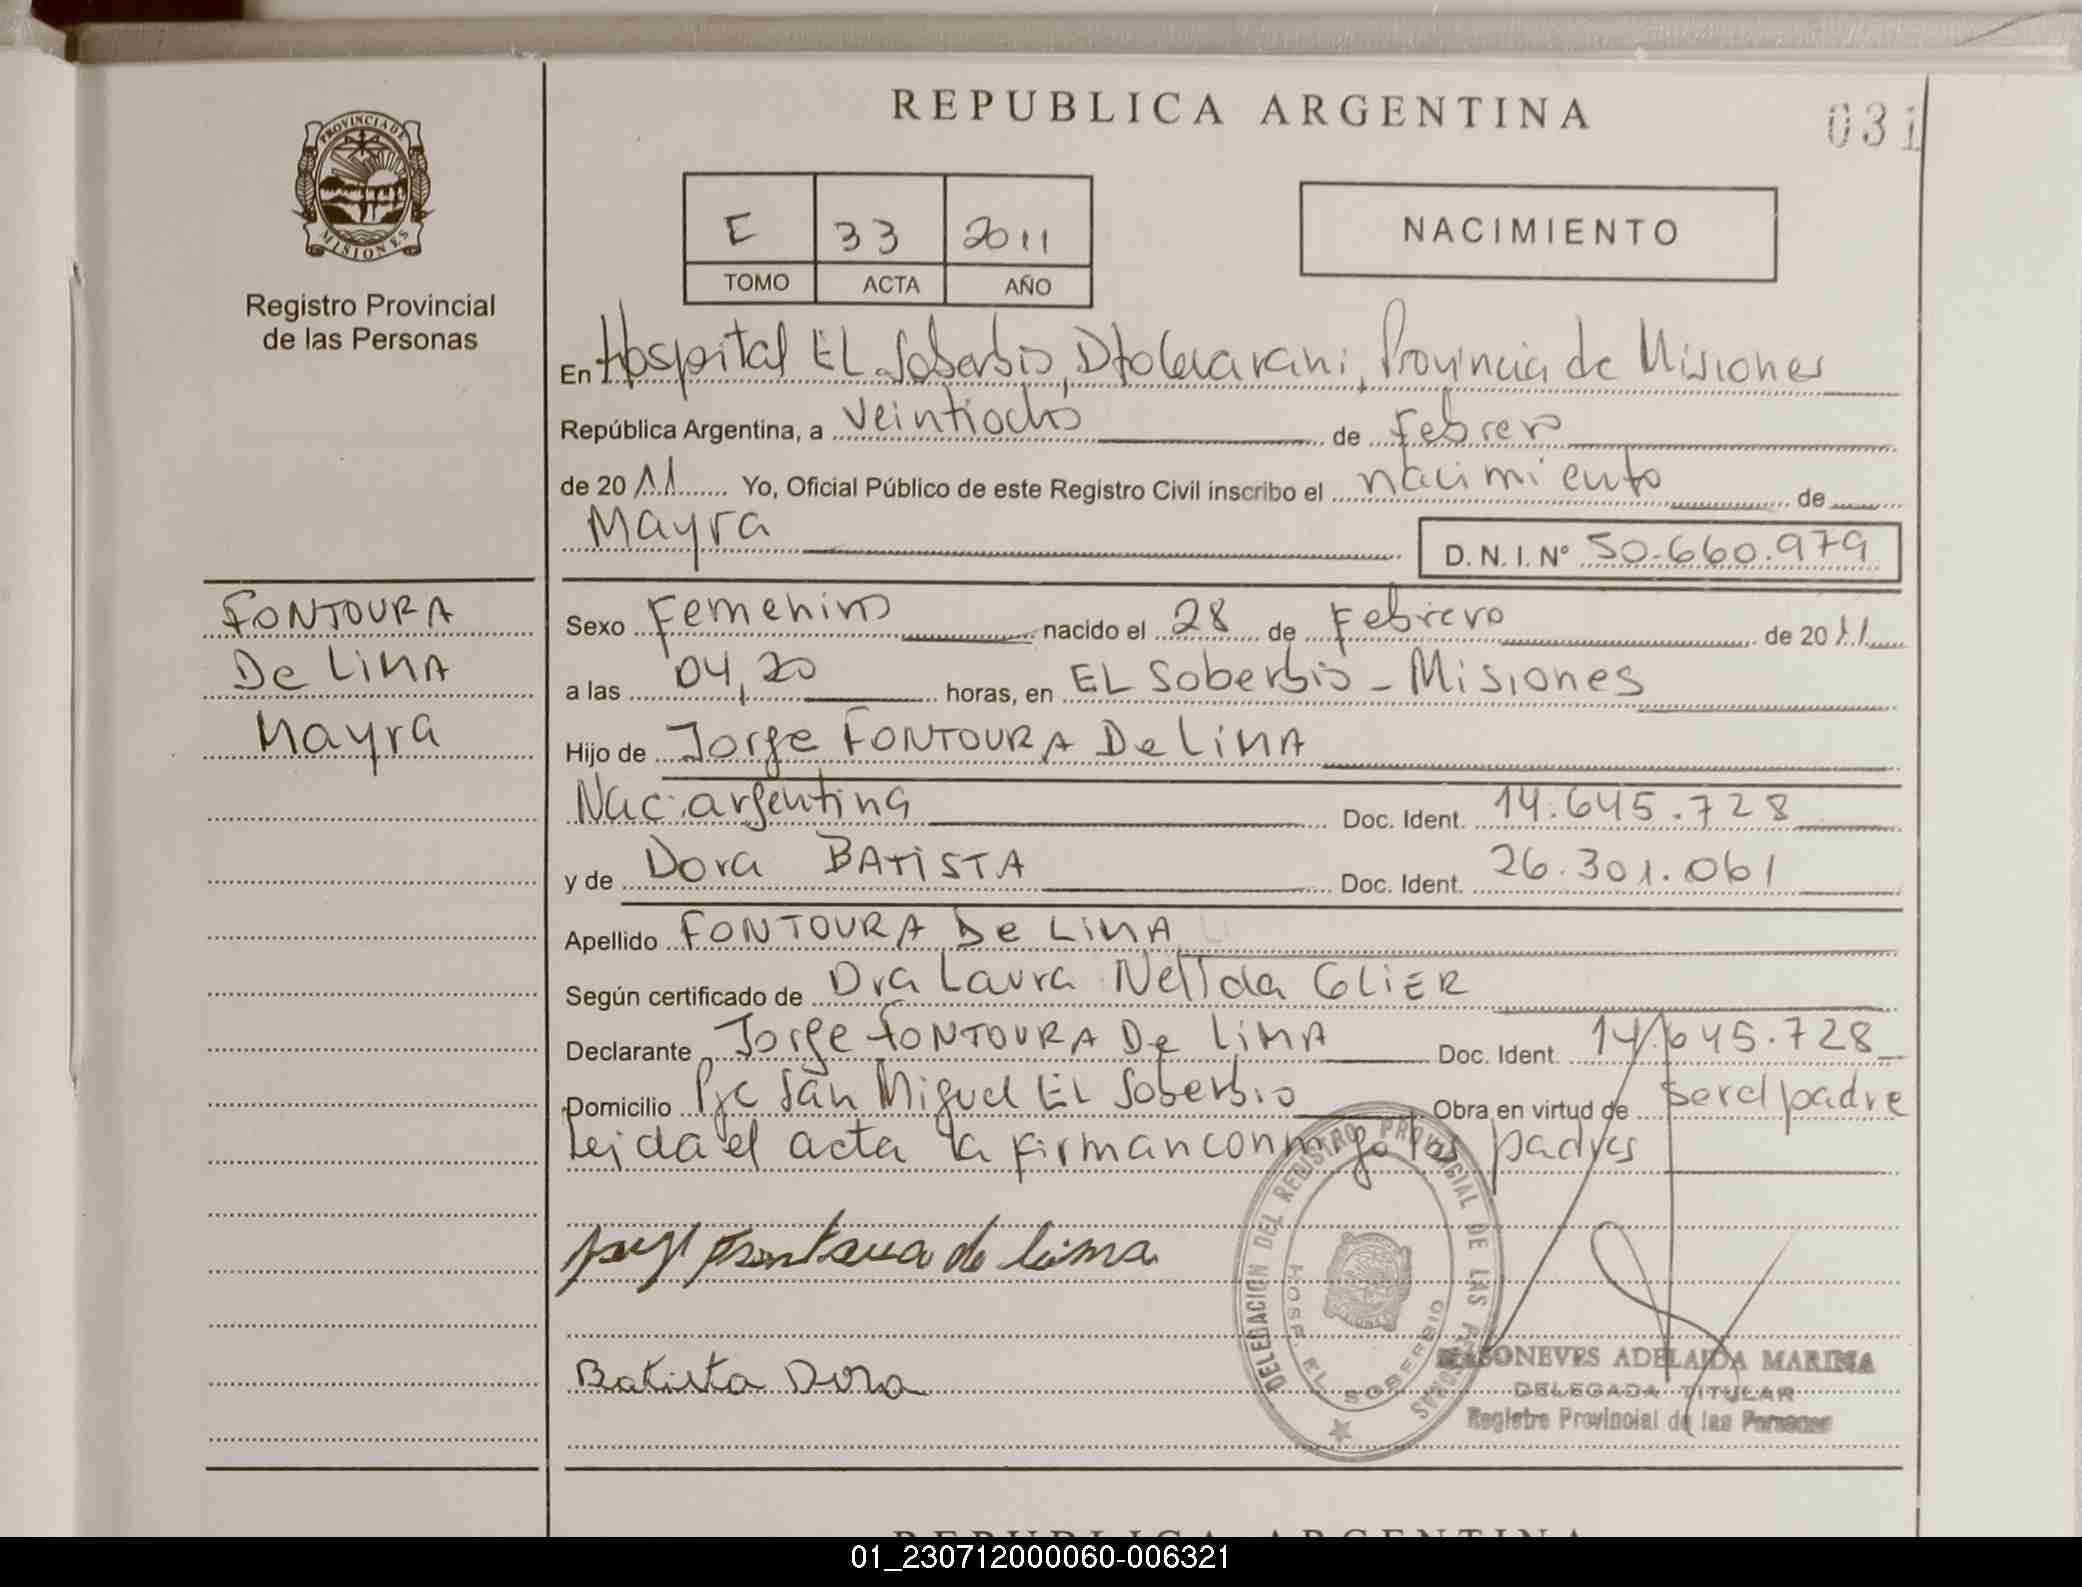 REPUBLICA ARGENTINA
031
PROVINCIA DE
MISIONES
Registro Provincial
de las Personas
E 33 2011
TOMO ACTA AÑO
NACIMIENTO
En Hospital EL Soberbio, Dto Guarani, Provincia de Misiones
República Argentina, a veintiocho de Febrero
de 2011 Yo, Oficial Público de este Registro Civil inscribo el nacimiento de
Mayra D. N. I. Nº 50.660.979
FONTOURA
De LiMA
Mayra
Sexo Femenino nacido el 28 de Febrero de 2011
a las 04,20 horas, en EL Soberbio - Misiones
Hijo de Jorge FONTOURA De LiMA
Nac. argentina Doc. Ident. 14.645.728
y de Dora BATiSTA Doc. Ident. 26.301.061
Apellido FONTOURA De LiMA
Según certificado de Dra Laura Nelida GLiER
Declarante Jorge FONTOURA De LiMA Doc. Ident. 14.645.728
Domicilio Pje San Miguel EL Soberbio Obra en virtud de ser el padre
Leida el acta la firman conmigo los padres
Fontoura de lima
Batista Dora
DELEGACION DEL REGISTRO PROVINCIAL DE LAS PERSONAS
HOSP. EL SOBERBIO
ADELAIDA MARINA
DELEGADA TITULAR
Registro Provincial de las Personas
REPUBLICA ARGENTINA
01_230712000060-006321